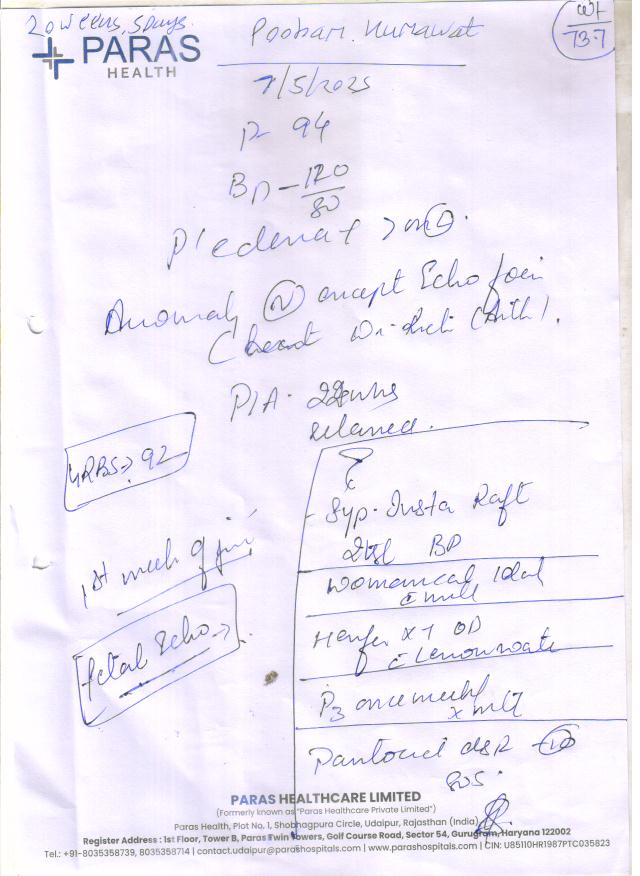 20 weeks, 5 days.
PARAS
HEALTH
Poonam Kumawat
Wt
73.7
7/5/2025
P- 94
BP - 120/80
P/edema
Anomaly (N) except Echo foci
(heart
P/A - 22 wks
relaxed.
GRBS → 92
Syp. Insta Raft
2tsf BD
1st week of june
Womancal 1 daily
c milk
fetal Echo →
Henfer X-T OD
c Lemonwate
P3 once
Pantocid DSR
SOS.
PARAS HEALTHCARE LIMITED
(Formerly known as "Paras Healthcare Private Limited")
Paras Health, Plot No. 1, Shobhagpura Circle, Udaipur, Rajasthan (India)
Register Address : 1st Floor, Tower B, Paras Twin Towers, Golf Course Road, Sector 54, Gurugram, Haryana 122002
Tel.: +91-8035358739, 8035358714 | contact.udaipur@parashospitals.com | www.parashospitals.com | CIN: U85110HR1987PTC035823